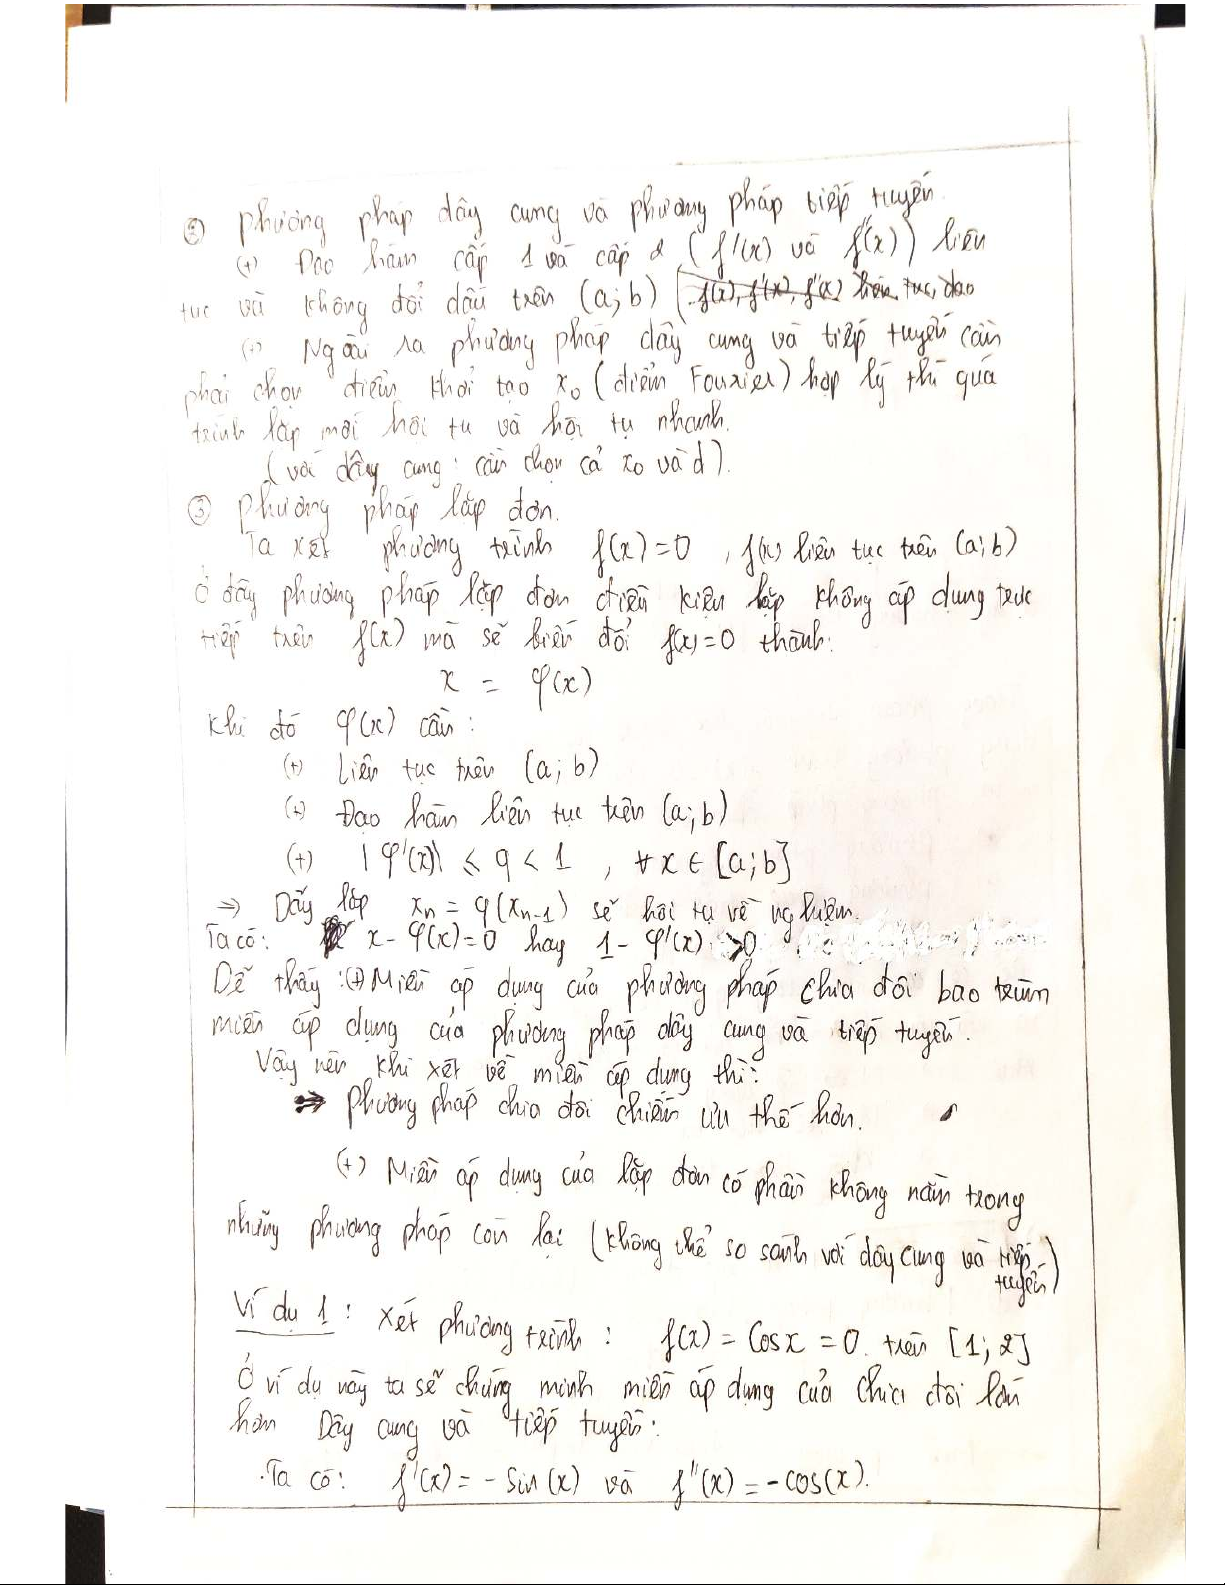 ② Phương pháp dây cung và phương pháp tiếp tuyến.
(+) Đạo hàm cấp 1 và cấp 2 (f'(x) và f''(x)) liên
tục và không đổi dấu trên (a;b)
(+) Ngoài ra phương pháp dây cung và tiếp tuyến cần
phải chọn điểm khởi tạo x₀ (điểm Fourier) hợp lý thì quá
trình lặp mới hội tụ và hội tụ nhanh.
(với dây cung: cần chọn cả x₀ và d).
③ Phương pháp lặp đơn.
Ta xét phương trình f(x)=0, f(x) liên tục trên (a;b)
Ở đây phương pháp lặp đơn điều kiện lặp không áp dụng trực
tiếp trên f(x) mà sẽ biến đổi f(x)=0 thành:
x = φ(x)
Khi đó φ(x) cần:
(+) Liên tục trên (a;b)
(+) Đạo hàm liên tục trên (a;b)
(+) |φ'(x)| ≤ q < 1, ∀x ∈ [a;b]
→ Dãy lặp xₙ = φ(xₙ₋₁) sẽ hội tụ về nghiệm.
Ta có: x - φ(x)=0 hay 1 - φ'(x) > 0
Dễ thấy: (+) Miền áp dụng của phương pháp chia đôi bao trùm
miền áp dụng của phương pháp dây cung và tiếp tuyến.
Vậy nên khi xét về miền áp dụng thì:
→ Phương pháp chia đôi chiếm ưu thế hơn.
(+) Miền áp dụng của lặp đơn có phần không nằm trong
những phương pháp còn lại (không thể so sánh với dây cung và tiếp
tuyến)
Ví dụ 1: Xét phương trình: f(x) = Cosx = 0. trên [1;2]
Ở ví dụ này ta sẽ chứng minh miền áp dụng của chia đôi lớn
hơn Dây cung và tiếp tuyến:
.Ta có: f'(x) = - Sin(x) và f''(x) = - cos(x).